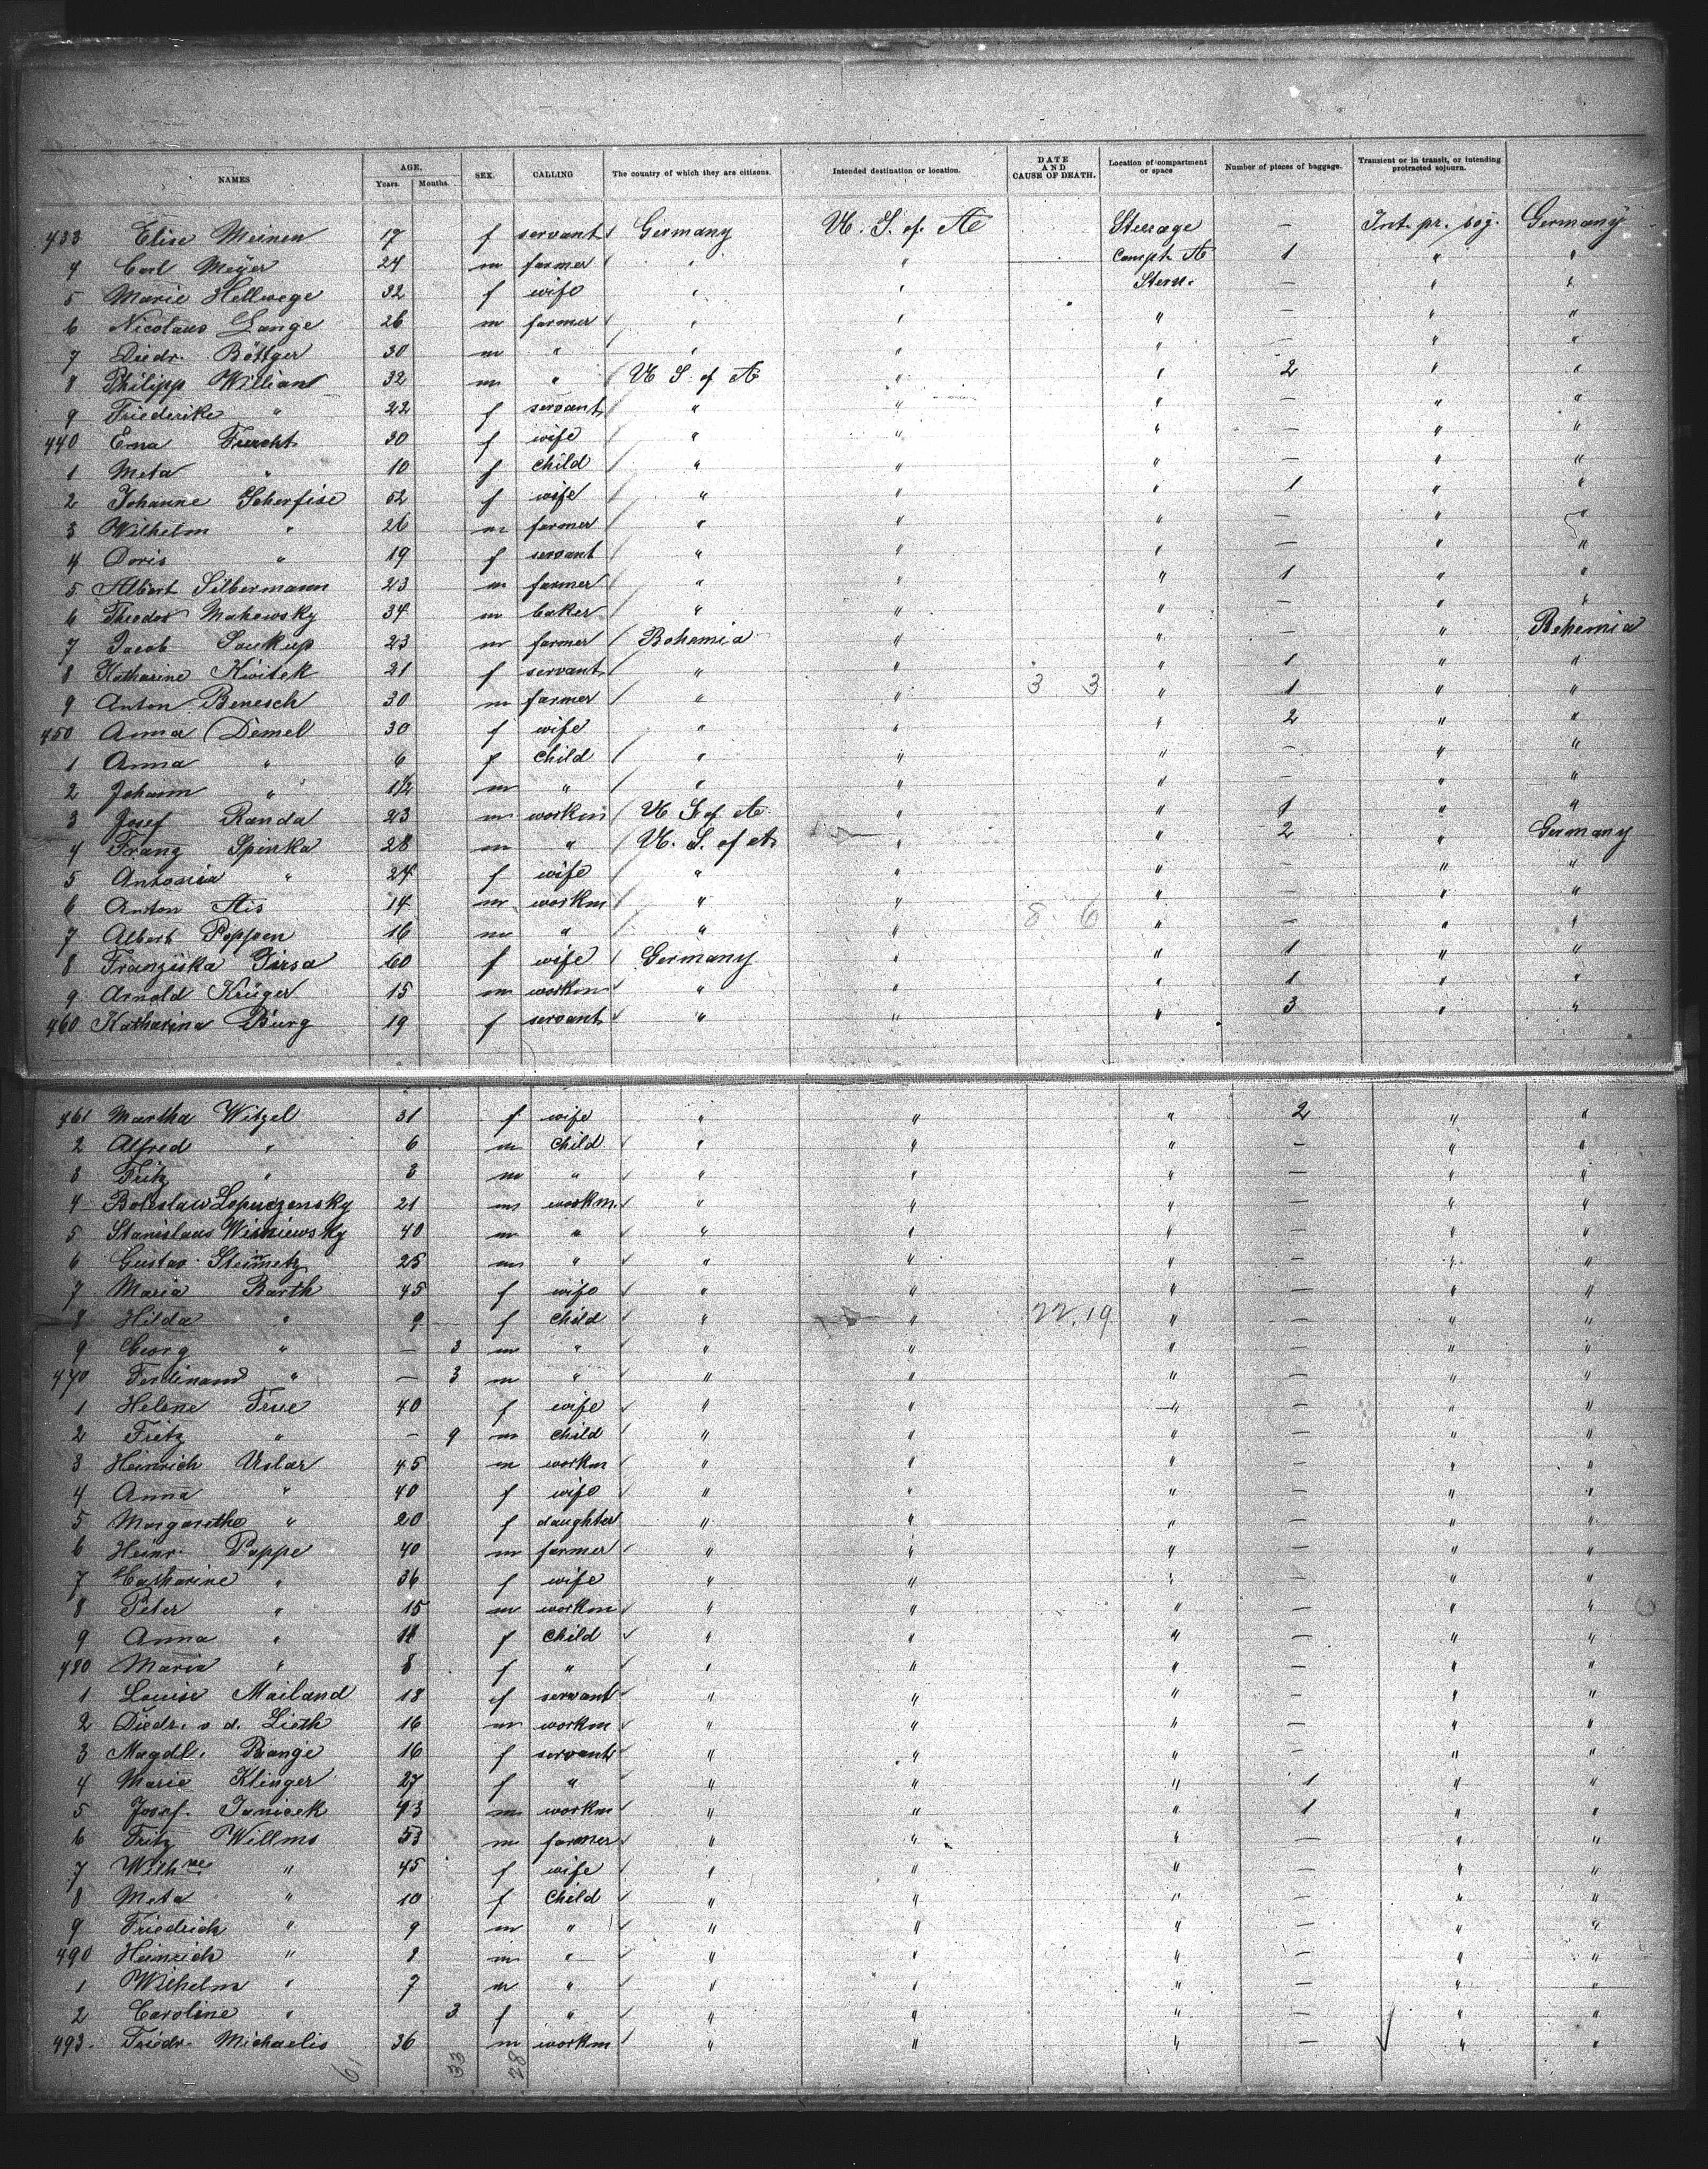 NAMES AGE. Years. Months. SEX. CALLING The country of which they are citizens. Intended destination or location. DATE AND CAUSE OF DEATH. Location of compartment or space Number of pieces of baggage. Transient or in transit, or intending protracted sojourn.
433 Elise Meinen 17 f servant Germany U. S. of A Steerage — Int. pr. soj. Germany
4 Carl Meyer 24 m farmer " " Compt. A 1 " "
5 Marie Hellwege 32 f wife " " Stern. — " "
6 Nicolaus Lange 26 m farmer " " " — " "
7 Diedr. Böttger 30 m " " " " — " "
8 Philipp William 32 m " U S. of A " " 2 " "
9 Friederike " 22 f servant " " " — " "
440 Erna Furcht 30 f wife " " " — " "
1 Meta " 10 f child " " " — " "
2 Johanne Scherfise 52 f wife " " " 1 " "
3 Wilhelm " 26 m farmer " " " — " "
4 Doris " 19 f servant " " " — " "
5 Albert Silbermann 23 m farmer " " " 1 " "
6 Theodor Mahewsky 34 m baker " " " — " "
7 Jacob Soukup 23 m farmer Bohemia " " — " Bohemia
8 Katharine Kwitek 21 f servant " " 3 3 " 1 " "
9 Anton Benesch 30 m farmer " " " 1 " "
450 Anna Demel 30 f wife " " " 2 " "
1 Anna " 6 f child " " " — " "
2 Johann " 1½ m " " " " — " "
3 Josef Randa 23 m workm U S of A " " 1 " "
4 Franz Spinka 28 m " U. S. of A " " 2 " Germany
5 Antonia " 24 f wife " " " — " "
6 Anton Stis 14 m workm " " 8 6 " — " "
7 Albert Poppen 16 m " " " " — " "
8 Franziska Jirsa 60 f wife Germany " " 1 " "
9 Arnold Krüger 15 m workm " " " 1 " "
460 Katharina Burg 19 f servant " " " 3 " "
461 Martha Witzel 31 f wife " " " 2 " "
2 Alfred " 6 m child " " " — " "
3 Fritz " 3 m " " " " — " "
4 Boleslaw Lopuszensky 21 m workm. " " " — " "
5 Stanislaus Wisniewsky 40 m " " " " — " "
6 Gustav Steinmetz 25 m " " " " — " "
7 Maria Barth 45 f wife " " " — " "
8 Hilda " 9 f child " " 22. 19 " — " "
9 Georg " — 3 m " " " " — " "
470 Ferdinand " — 3 m " " " " — " "
1 Helene True 40 f wife " " " — " "
2 Fritz " — 9 m child " " " — " "
3 Heinrich Uslar 45 m workm " " " — " "
4 Anna " 40 f wife " " " — " "
5 Margarethe " 20 f daughter " " " — " "
6 Heinr. Poppe 40 m farmer " " " — " "
7 Catharine " 36 f wife " " " — " "
8 Peter " 15 m workm " " " — " "
9 Anna " 11 f child " " " — " "
480 Maria " 8 f " " " " — " "
1 Louise Mailand 18 f servant " " " — " "
2 Diedr. v. d. Lieth 16 m workm " " " — " "
3 Magdl. Prange 16 f servant " " " — " "
4 Marie Klinger 27 f " " " " 1 " "
5 Josef Janicek 43 m workm " " " 1 " "
6 Fritz Willms 53 m farmer " " " — " "
7 Wilhne " 45 f wife " " " — " "
8 Meta " 10 f child " " " — " "
9 Friedrich " 9 m " " " " — " "
490 Heinrich " 8 m " " " " — " "
1 Wilhelm " 7 m " " " " — " "
2 Caroline " 3 f " " " " — " "
493. Friedr. Michaelis 36 m workm " " " — " "
61 33 28